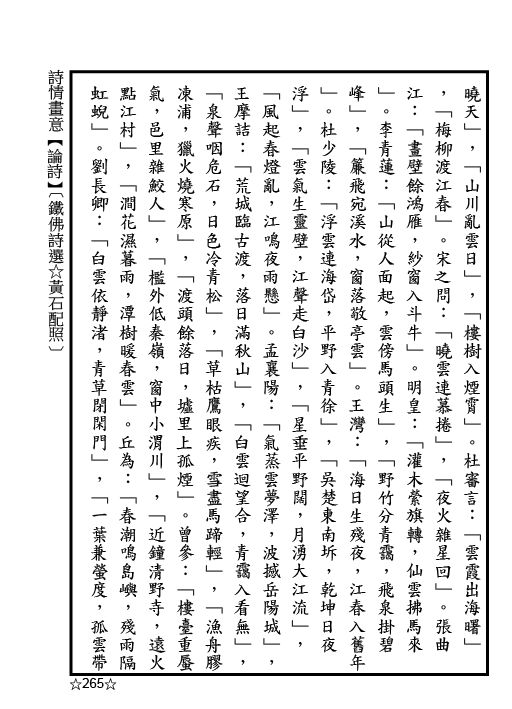 曉天」，「山川亂雲日」，「樓樹入煙霄」。杜審言：「雲霞出海曙」
，「梅柳渡江春」。宋之問：「曉雲連幕捲」，「夜火雜星回」。張曲
江：「晝壁餘鴻雁，紗窗入斗牛」。明皇：「灌木縈旗轉，仙雲拂馬來
」。李青蓮：「山從人面起，雲傍馬頭生」，「野竹分青靄，飛泉掛碧
峰」，「簾飛宛溪水，窗落敬亭雲」。王灣：「海日生殘夜，江春入舊年
」。杜少陵：「浮雲連海岱，平野入青徐」，「吳楚東南坼，乾坤日夜
浮」，「雲氣生靈壁，江聲走白沙」，「星垂平野闊，月湧大江流」，
「風起春燈亂，江鳴夜雨懸」。孟襄陽：「氣蒸雲夢澤，波撼岳陽城」，
王摩詰：「荒城臨古渡，落日滿秋山」，「白雲迴望合，青靄入看無」，
「泉聲咽危石，日色冷青松」，「草枯鷹眼疾，雪盡馬蹄輕」，「漁舟膠
凍浦，獵火燒寒原」，「渡頭餘落日，墟里上孤煙」。曾參：「樓臺重蜃
氣，邑里雜鮫人」，「檻外低秦嶺，窗中小渭川」，「近鐘清野寺，遠火
點江村」，「澗花濕暮雨，潭樹暖春雲」。丘為：「春潮鳴島嶼，殘雨隔
虹蜺」。劉長卿：「白雲依靜渚，青草閉閑門」，「一葉兼螢度，孤雲帶
詩情畫意【論詩】〔鐵佛詩選☆黃石配照〕
☆265☆